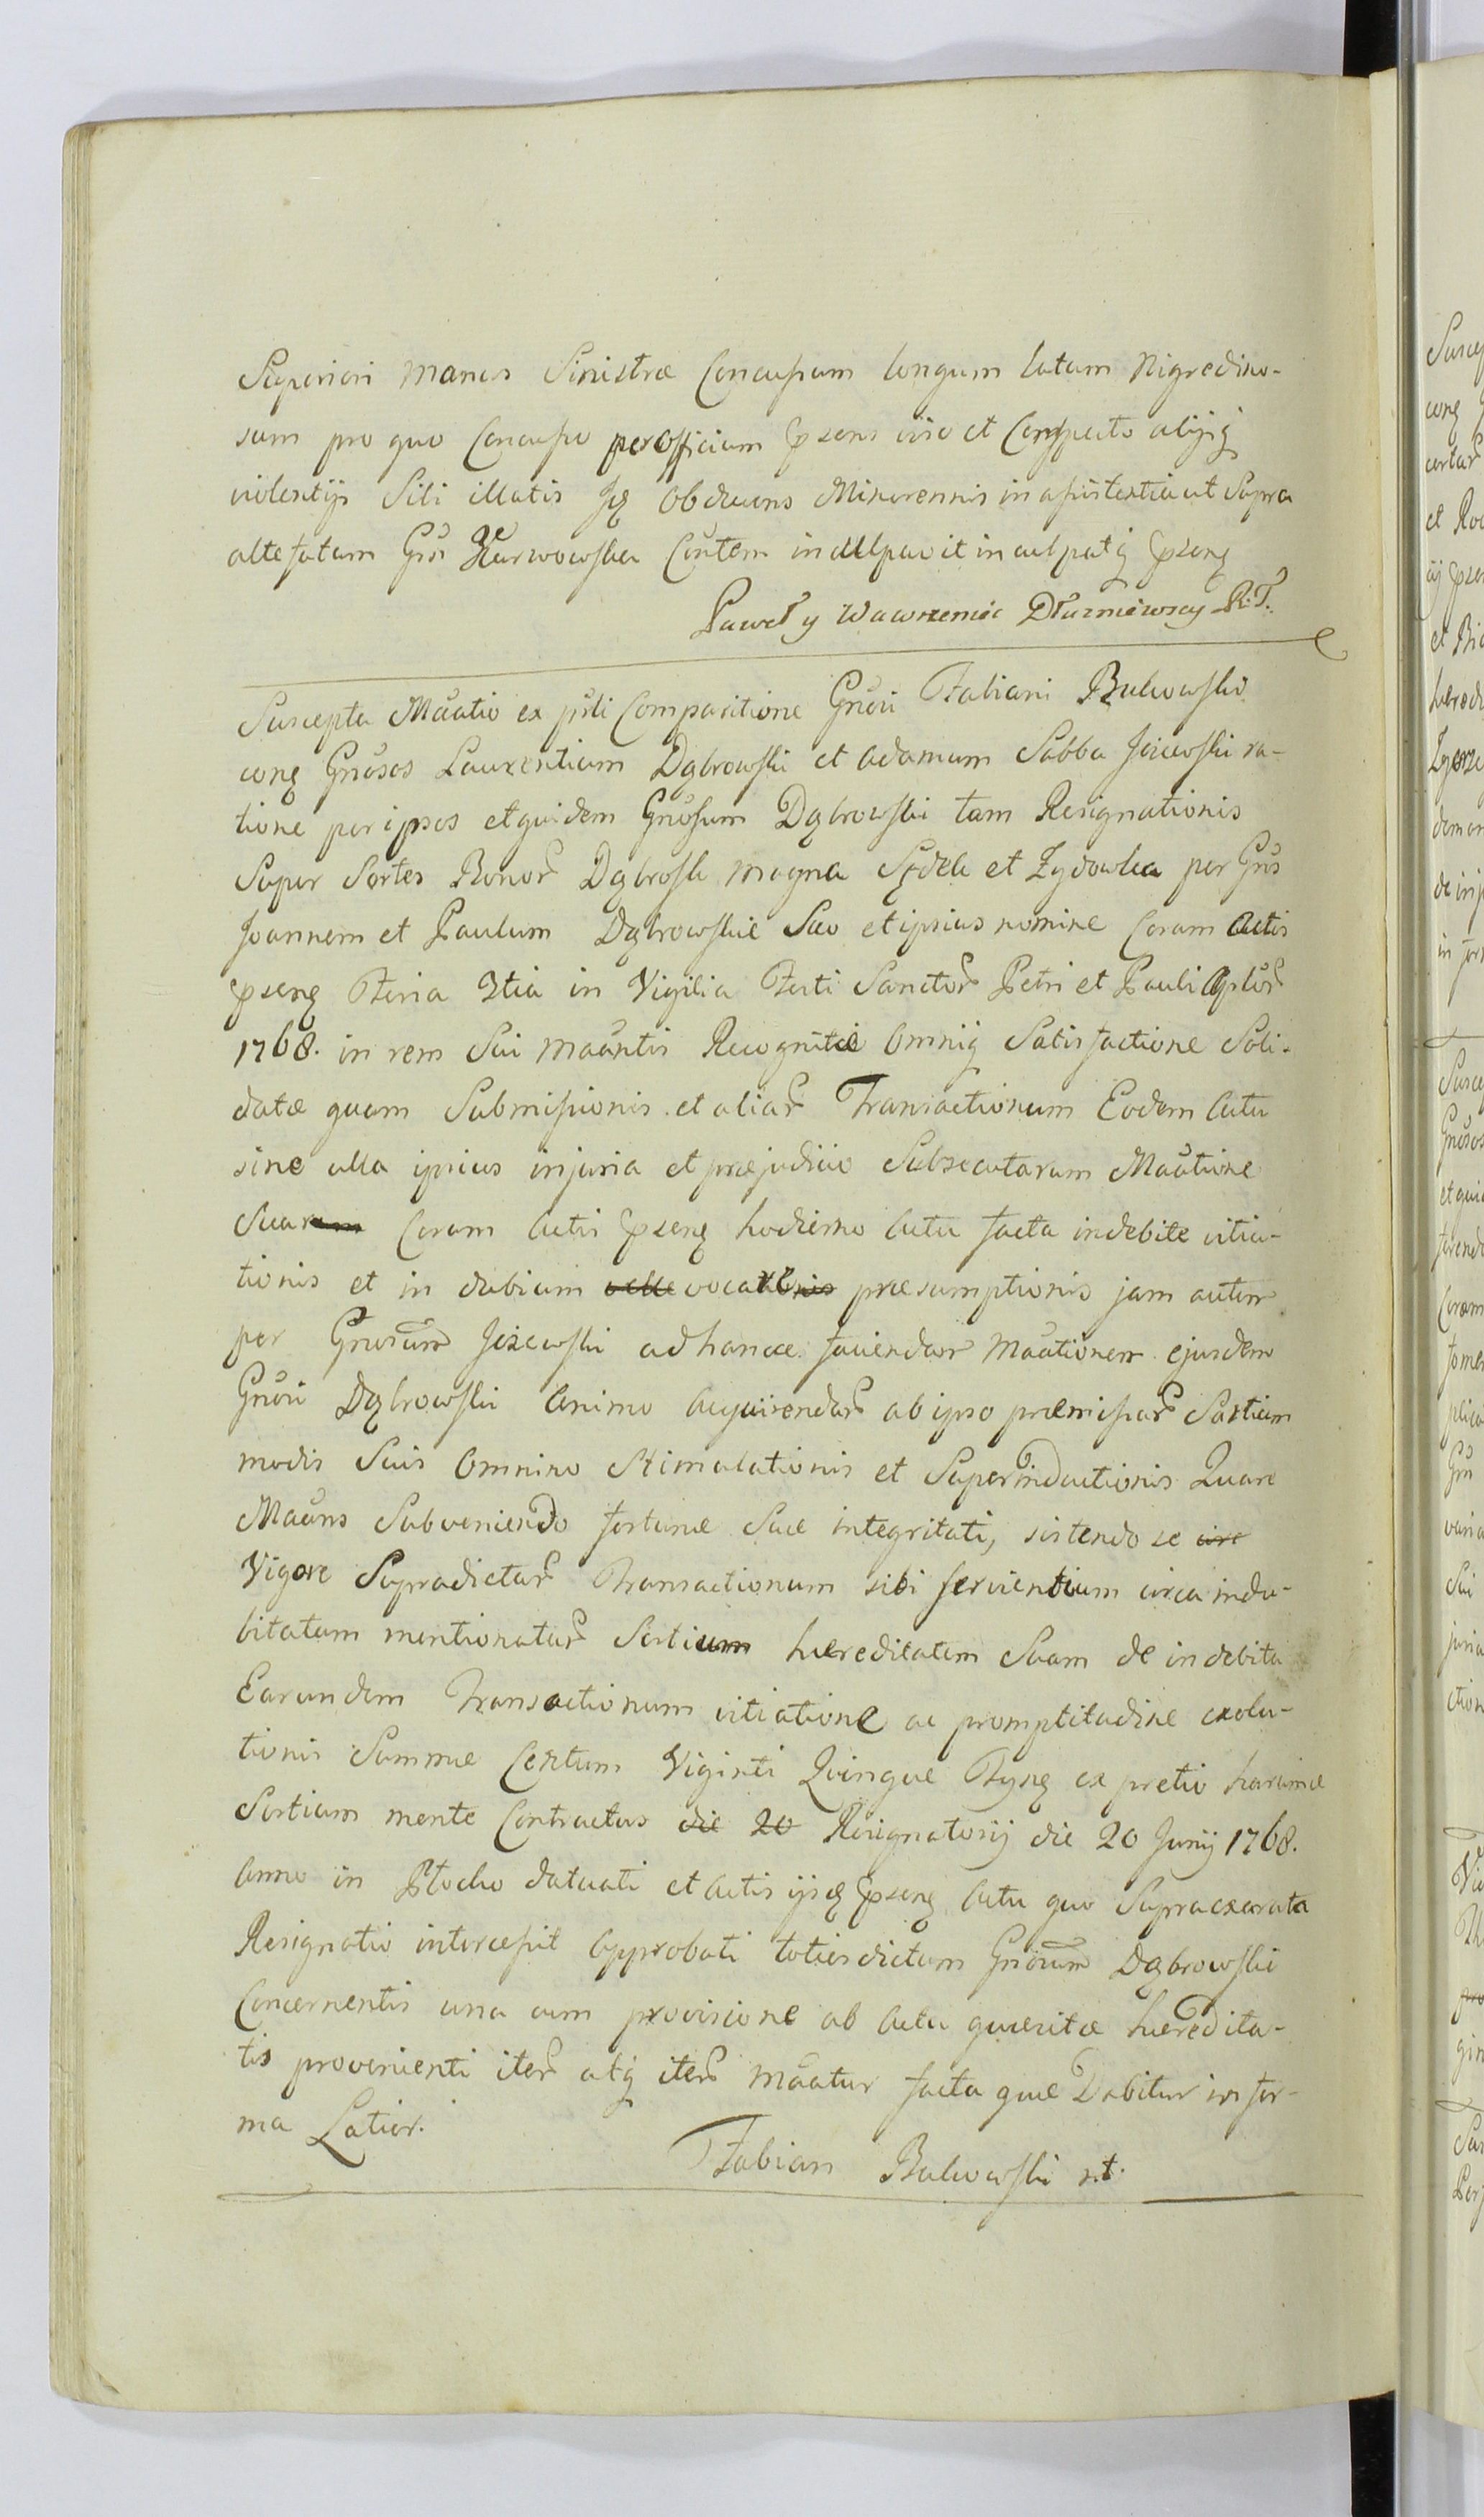 Superiori manus Sinistræ Concussum longum latum Nigredino-
sum pro quo Concusso per officium psens viso et Conspecto alijsq
violentijs Sibi illatis Jq obducens Minorennis in assistentia ut Supra
altefatam Gm Karwowska Contem inculpavit inculpatq psenq
Paweł y Wawrzeniec Dłuzniewscy R.T.
Suscepta Maãtio ex pãli Comparitione Gnõsi Fabiani Bukowski
conq Gnõsos Laurentium Dąbrowski et Adamum Sabba Jeżewski ra-
tione per ipsos et quidem Gnõsum Dąbrowski tam Resignationis
Super Sortes Bonor Dąbrosk magna Sędek et Żydowka per Gnõs
Joannem et Paulum Dąbrowskie Suo et ipsius nomine Coram Actis
psenq Feria 3tia in Vigilia Festi Sanctor Petri et Pauli Aplor
1768. in rem Sui maãntis Recognitæ Omniq Satisfactione Soli-
datæ quam Submissionis et aliar Transactionum Eodem Actu
sine ulla ipsius injuria et præjudicio Subsecutarum Maãtione
Sua Coram Actis psenq hodierno Actu facta indebite vitia-
tionis et in dubium vocationis præsumptionis jam autem
per Gnosum Jeżewski ad hancce faciendam Maãtionem ejusdem
Gnõsi Dąbrowski Animo Acquirendar ab ipso præmissar Sortium
modis Suis Omnino Stimulationis et Superinductionis Quare
Maãns Subveniendo fortunæ Suæ integritati, sistendo se
Vigore Supradictar Transactionum sibi servientium circa indu-
bitatam mentionatar Sortium hæreditatem Suam de indebita
Earundem Transactionum vitiatione ac promptitudine exolu-
tionis Summæ Centum Viginti Quinque Tynf ex pretio harumce
Sortium mente Contractus die 20 Resignatorij die 20 Junij 1768.
Anno in Płocko datuati et Actis ijsdē psenq Actu quo Supraexarata
Resignatio intercessit Approbati totiesdictum Gnõsum Dąbrowski
Concernentis una cum provisione ab Actu quæsitæ hæredita-
tis provenienti iter atq iter maãtur facta quæ Dabitur in for-
ma Latior.
Fabian Bukowski r.t.